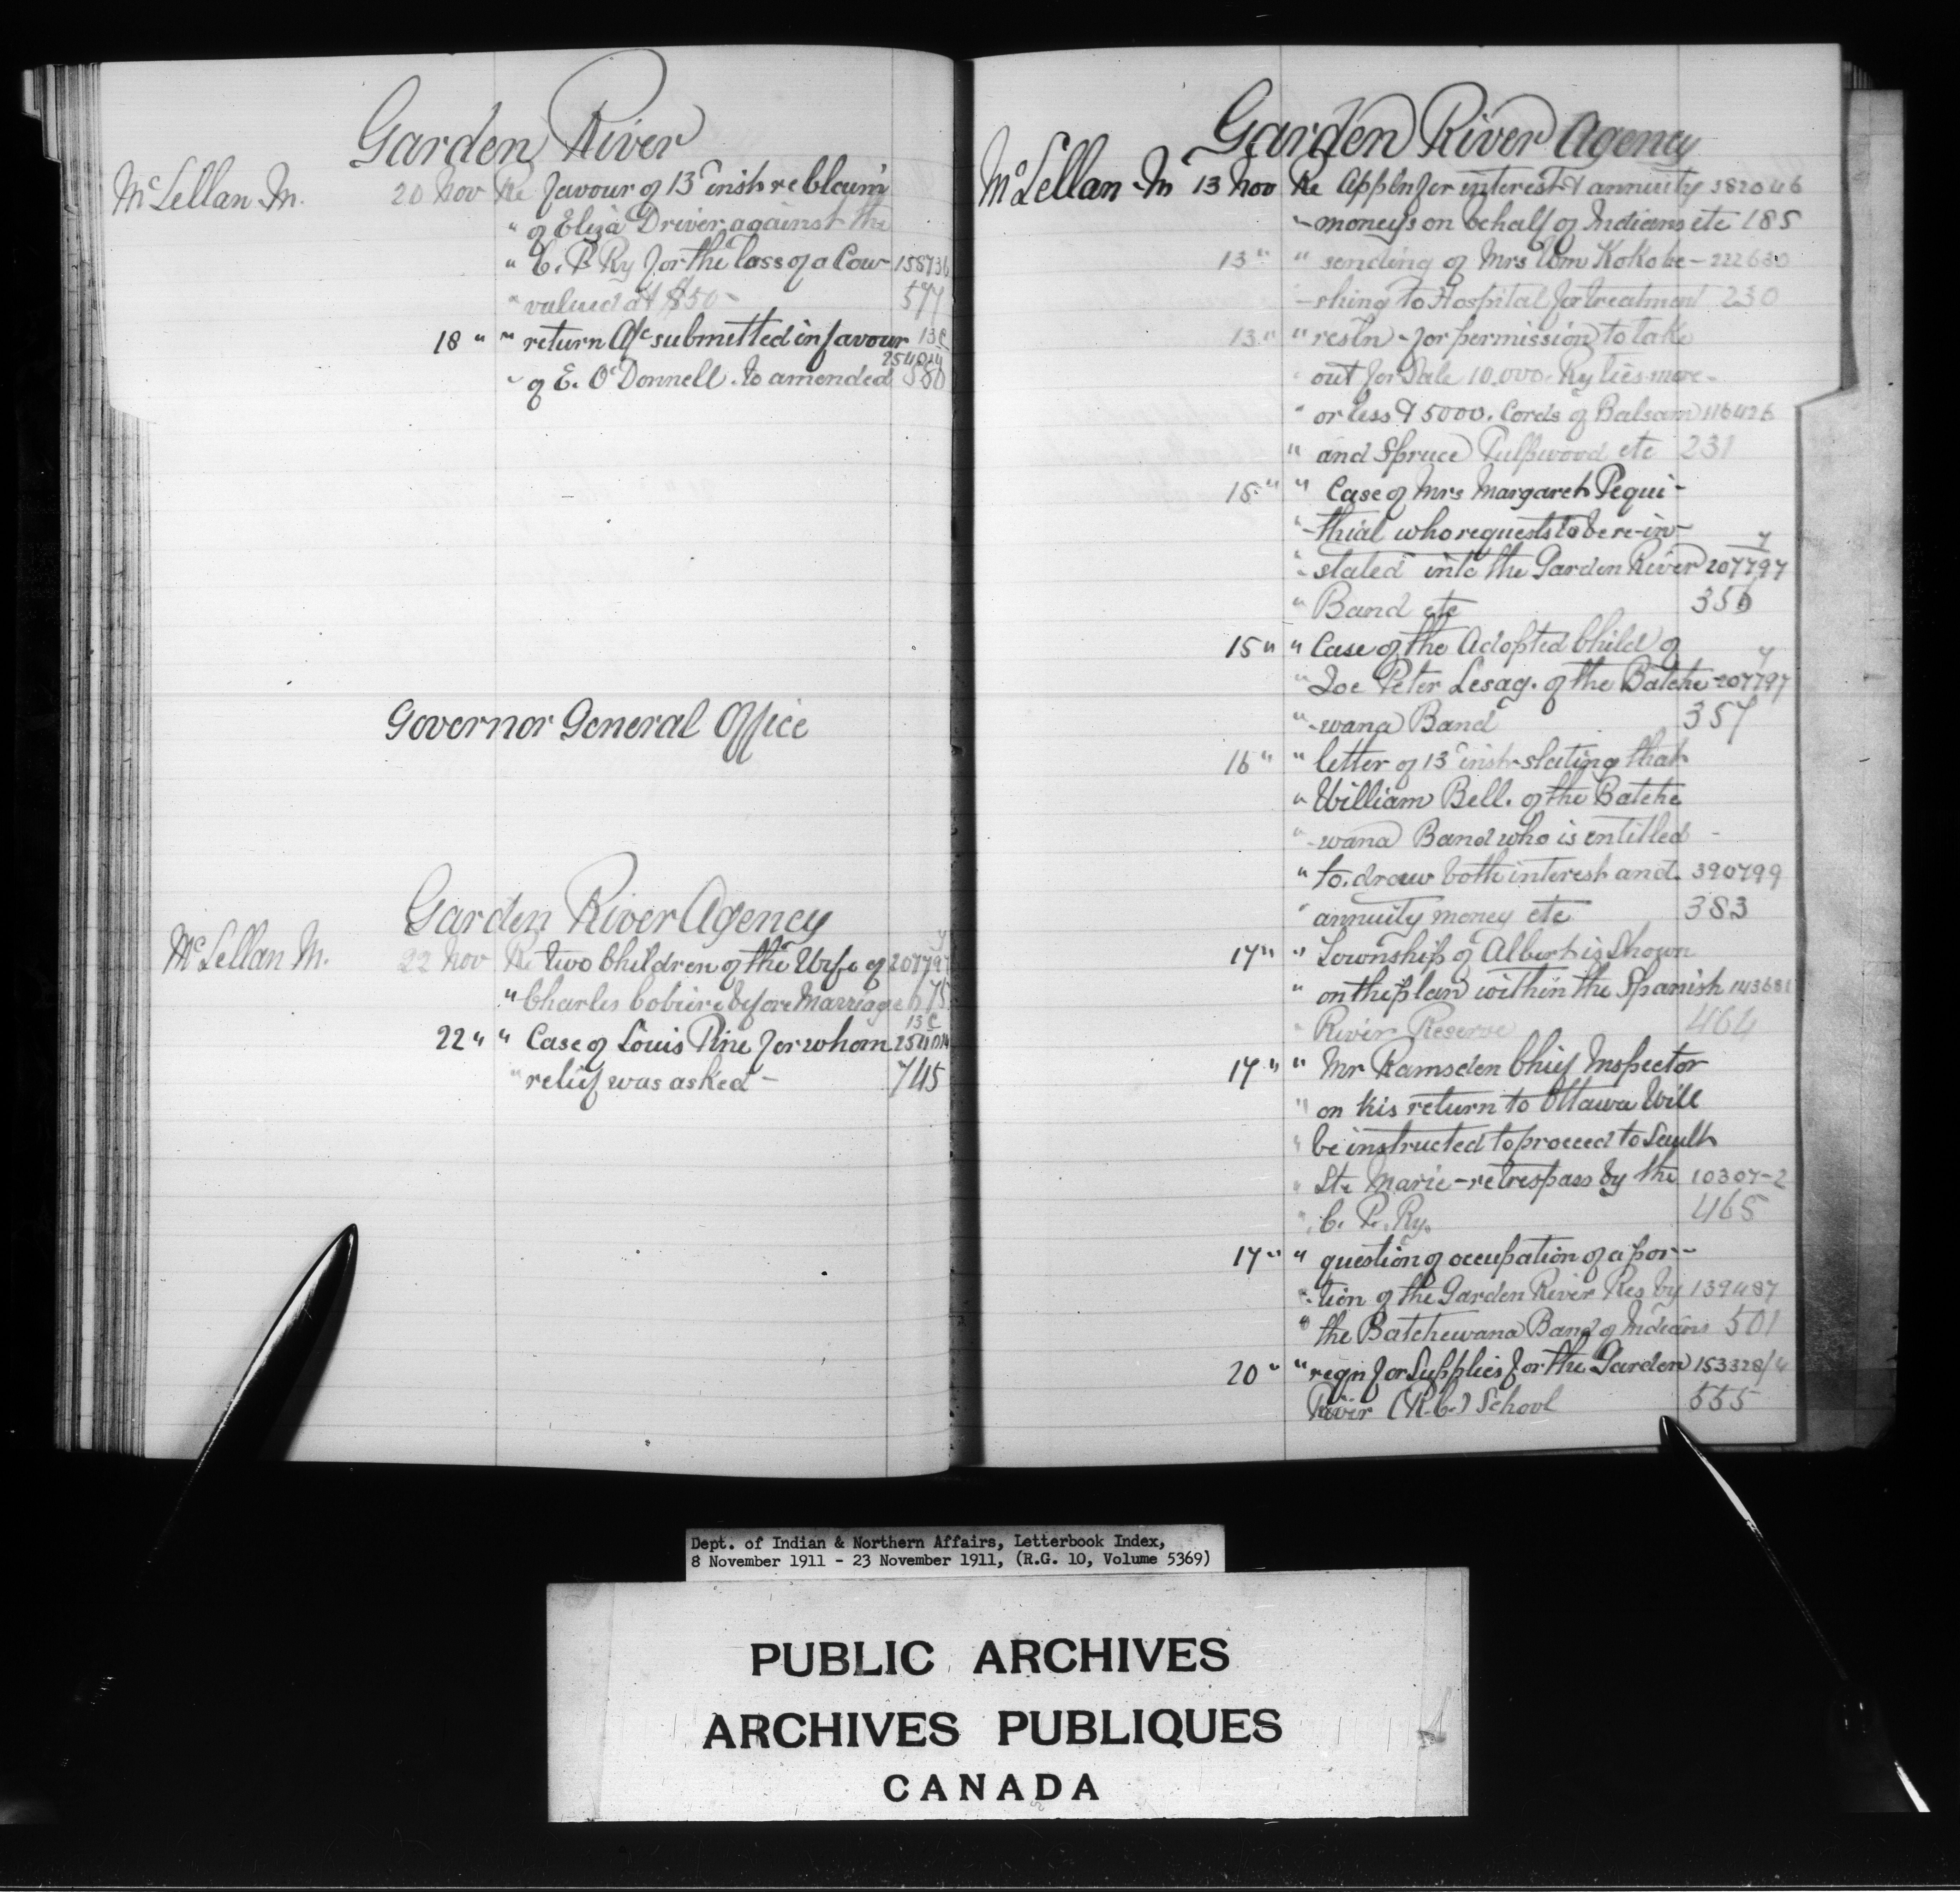 Garden River
McLellan M. 20 Nov Re favour of 13th inst re claim
" of Eliza Driver against the
" C. P. Ry for the loss of a Cow 158736
" valued at $50- 577
18 " " return A/c submitted in favour 13c
254014
" of E. O'Donnell. to amended 580
Governor General Office
Garden River Agency
McLellan M. 22 Nov Re two Children of the Wife of 207797
" Charles before Marriage 675
13c
22 " " Case of Louis Pine for whom 254014
" relief was asked - 745
Garden River Agency
McLellan M 13 Nov Re Appln for interest & annuity 382046
" moneys on behalf of Indians etc 185
13 " " sending of Mrs Wm Kokobe- 222630
-shing to Hospital for treatment 230
13 " " resln - for permission to take
" out for Sale 10,000 Ry ties more
" or less & 5000. Cords of Balsam 116426
" and Spruce Pulpwood etc 231
15 " " Case of Mrs Margaret Pequi-
" -thial who requests to be re-in- 7
" -stated into the Garden River 207797
" Band etc 356
15 " " Case of the Adopted Child of 7
" Joe Peter Lesag. of the Batche- 207797
" -wana Band 357
16 " " letter of 13th inst - stating that
" William Bell. of the Batche
" -wana Band who is entitled -
" to. draw both interest and. 390799
" annuity money etc 383
17 " " Township of Albert is Shown
" on the plan within the Spanish 143681
" River Reserve 464
17 " " Mr Ramsden Chief Inspector
" on his return to Ottawa Will
" be instructed to proceed to Sault
" Ste Marie - re trespass by the 10307-2
" C. P. Ry. 465
17 " " question of occupation of a por-
" -tion of the Garden River Res by 139487
" the Batchewana Band of Indians 501
20 " " reqn for Supplies for the Garden 153328/4
River (R.C.) School 555
Dept. of Indian & Northern Affairs, Letterbook Index,
8 November 1911 - 23 November 1911, (R.G. 10, Volume 5369)
PUBLIC ARCHIVES
ARCHIVES PUBLIQUES
CANADA